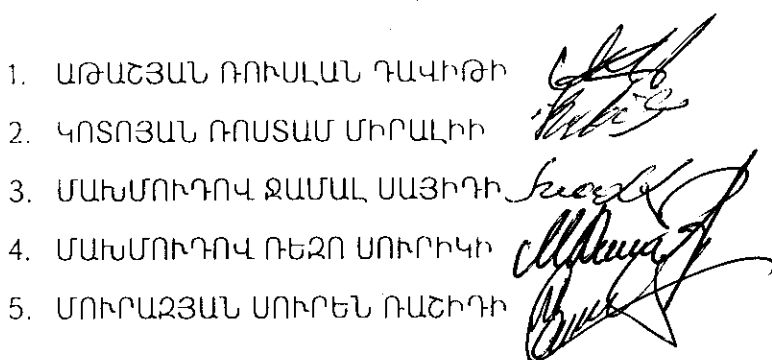 1. ԱԹԱՇՅԱՆ ՌՈՒՍԼԱՆ ԴԱՎԻԹԻ
2. ԿՈՏՈՅԱՆ ՌՈՍՏԱՄ ՄԻՐԱԼԻԻ
3. ՄԱԽՄՈՒԴՈՎ ՋԱՄԱԼ ՍԱՅԻԴԻ
4. ՄԱԽՄՈՒԴՈՎ ՌԵԶՈ ՍՈՒՐԻԿԻ
5. ՄՈՒՐԱԶՅԱՆ ՍՈՒՐԵՆ ՌԱՇԻԴԻ